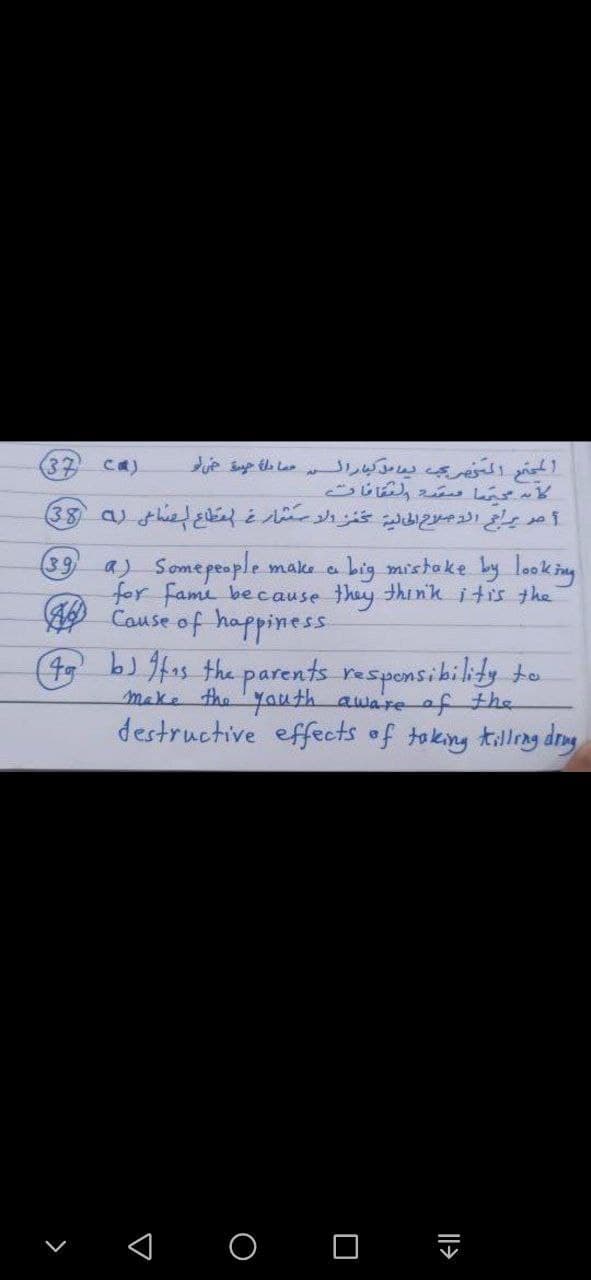 (37) c a) المجتمع المتحضر يجب يعامل كبار السن معاملة جيدة حتى لو
كانه مجتمعا متعدد الثقافات
(38) a) أحد برامج الاصلاح الحالية تحفز الاستثمار في القطاع الصناعي
(39) a) Somepeople make a big mistake by looking
for Fame because they think itis the
Cause of happiness
(40) b) It is the parents responsibility to
make the youth aware of the
destructive effects of taking killing drug